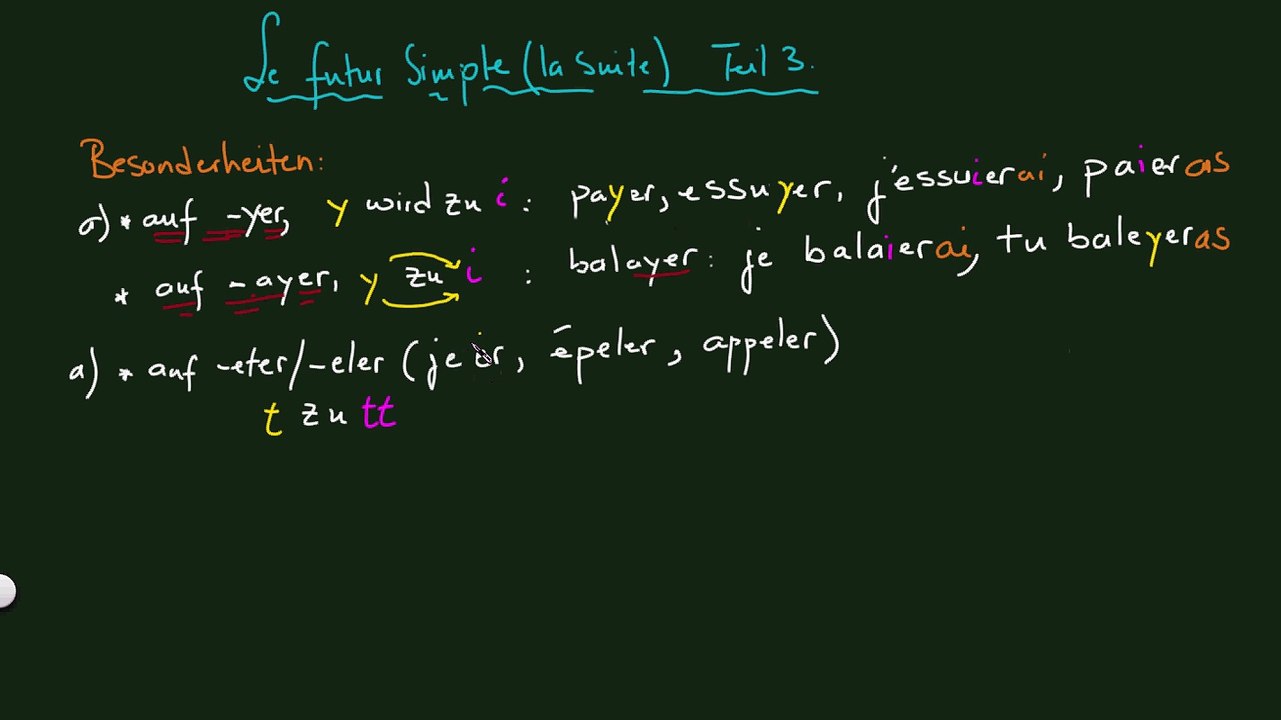 Le futur simple (la suite) Teil 3.
Besonderheiten:
a) * auf -yer, y wird zu i : payer, essuyer, j'essuierai, paieras
* auf -ayer, y zu i : balayer : je balaierai, tu baleyeras
a) * auf -eter/-eler ( , épeler, appeler)
t zu tt